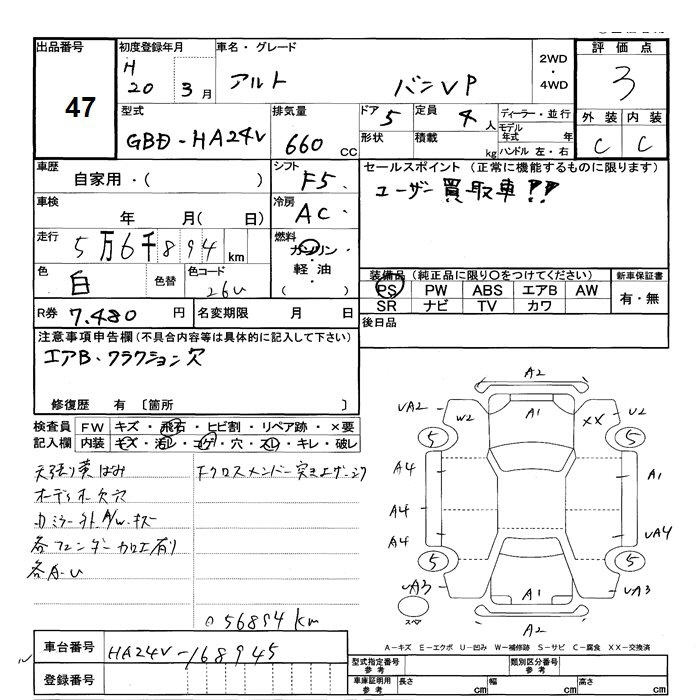 出品番号
47
初度登録年月
H
20 3月
車名・グレード
アルト バンVP
2WD
・
4WD
評価点
3
型式
GBD-HA24V
排気量
660 CC
ドア 5
形状
定員 4人
積載 kg
ディーラー・並行
モデル年式 年
ハンドル 左・右
外装 内装
C C
車歴
自家用・( )
シフト
F5
セールスポイント (正常に機能するものに限ります)
ユーザー買取車!!
車検
年 月( 日)
冷房
AC
走行
5万6千894 km
燃料
ガソリン・
軽油・
( )
色
白
色替
色コード
26U
装備品 (純正品に限り〇をつけてください)
PS PW ABS エアB AW
SR ナビ TV カワ
新車保証書
有・無
R券 7,480 円
名変期限 月 日
後日品
注意事項申告欄 (不具合内容等は具体的に記入して下さい)
エアB、クラクション穴
修復歴 有 〔箇所 〕
検査員
記入欄
FW キズ・飛石・ヒビ割・リペア跡・×要
内装 キズ・汚レ・コゲ・穴・スレ・キレ・破レ
天張り黄ばみ
オーディオ欠穴
各フェンダー加工有り
056894km
A2
UA2 W2 A1 XX U2
5 5
A4 A1
A4
A4 UA4
5 5
UA3 A1 UA3
スペア
A2
A-キズ E-エクボ U-凹み W-補修跡 S-サビ C-腐食 XX-交換済
車台番号
HA24V-168945
登録番号
型式指定番号
参考
類別区分番号
参考
車庫証明用
参考
長さ cm
幅 cm
高さ cm